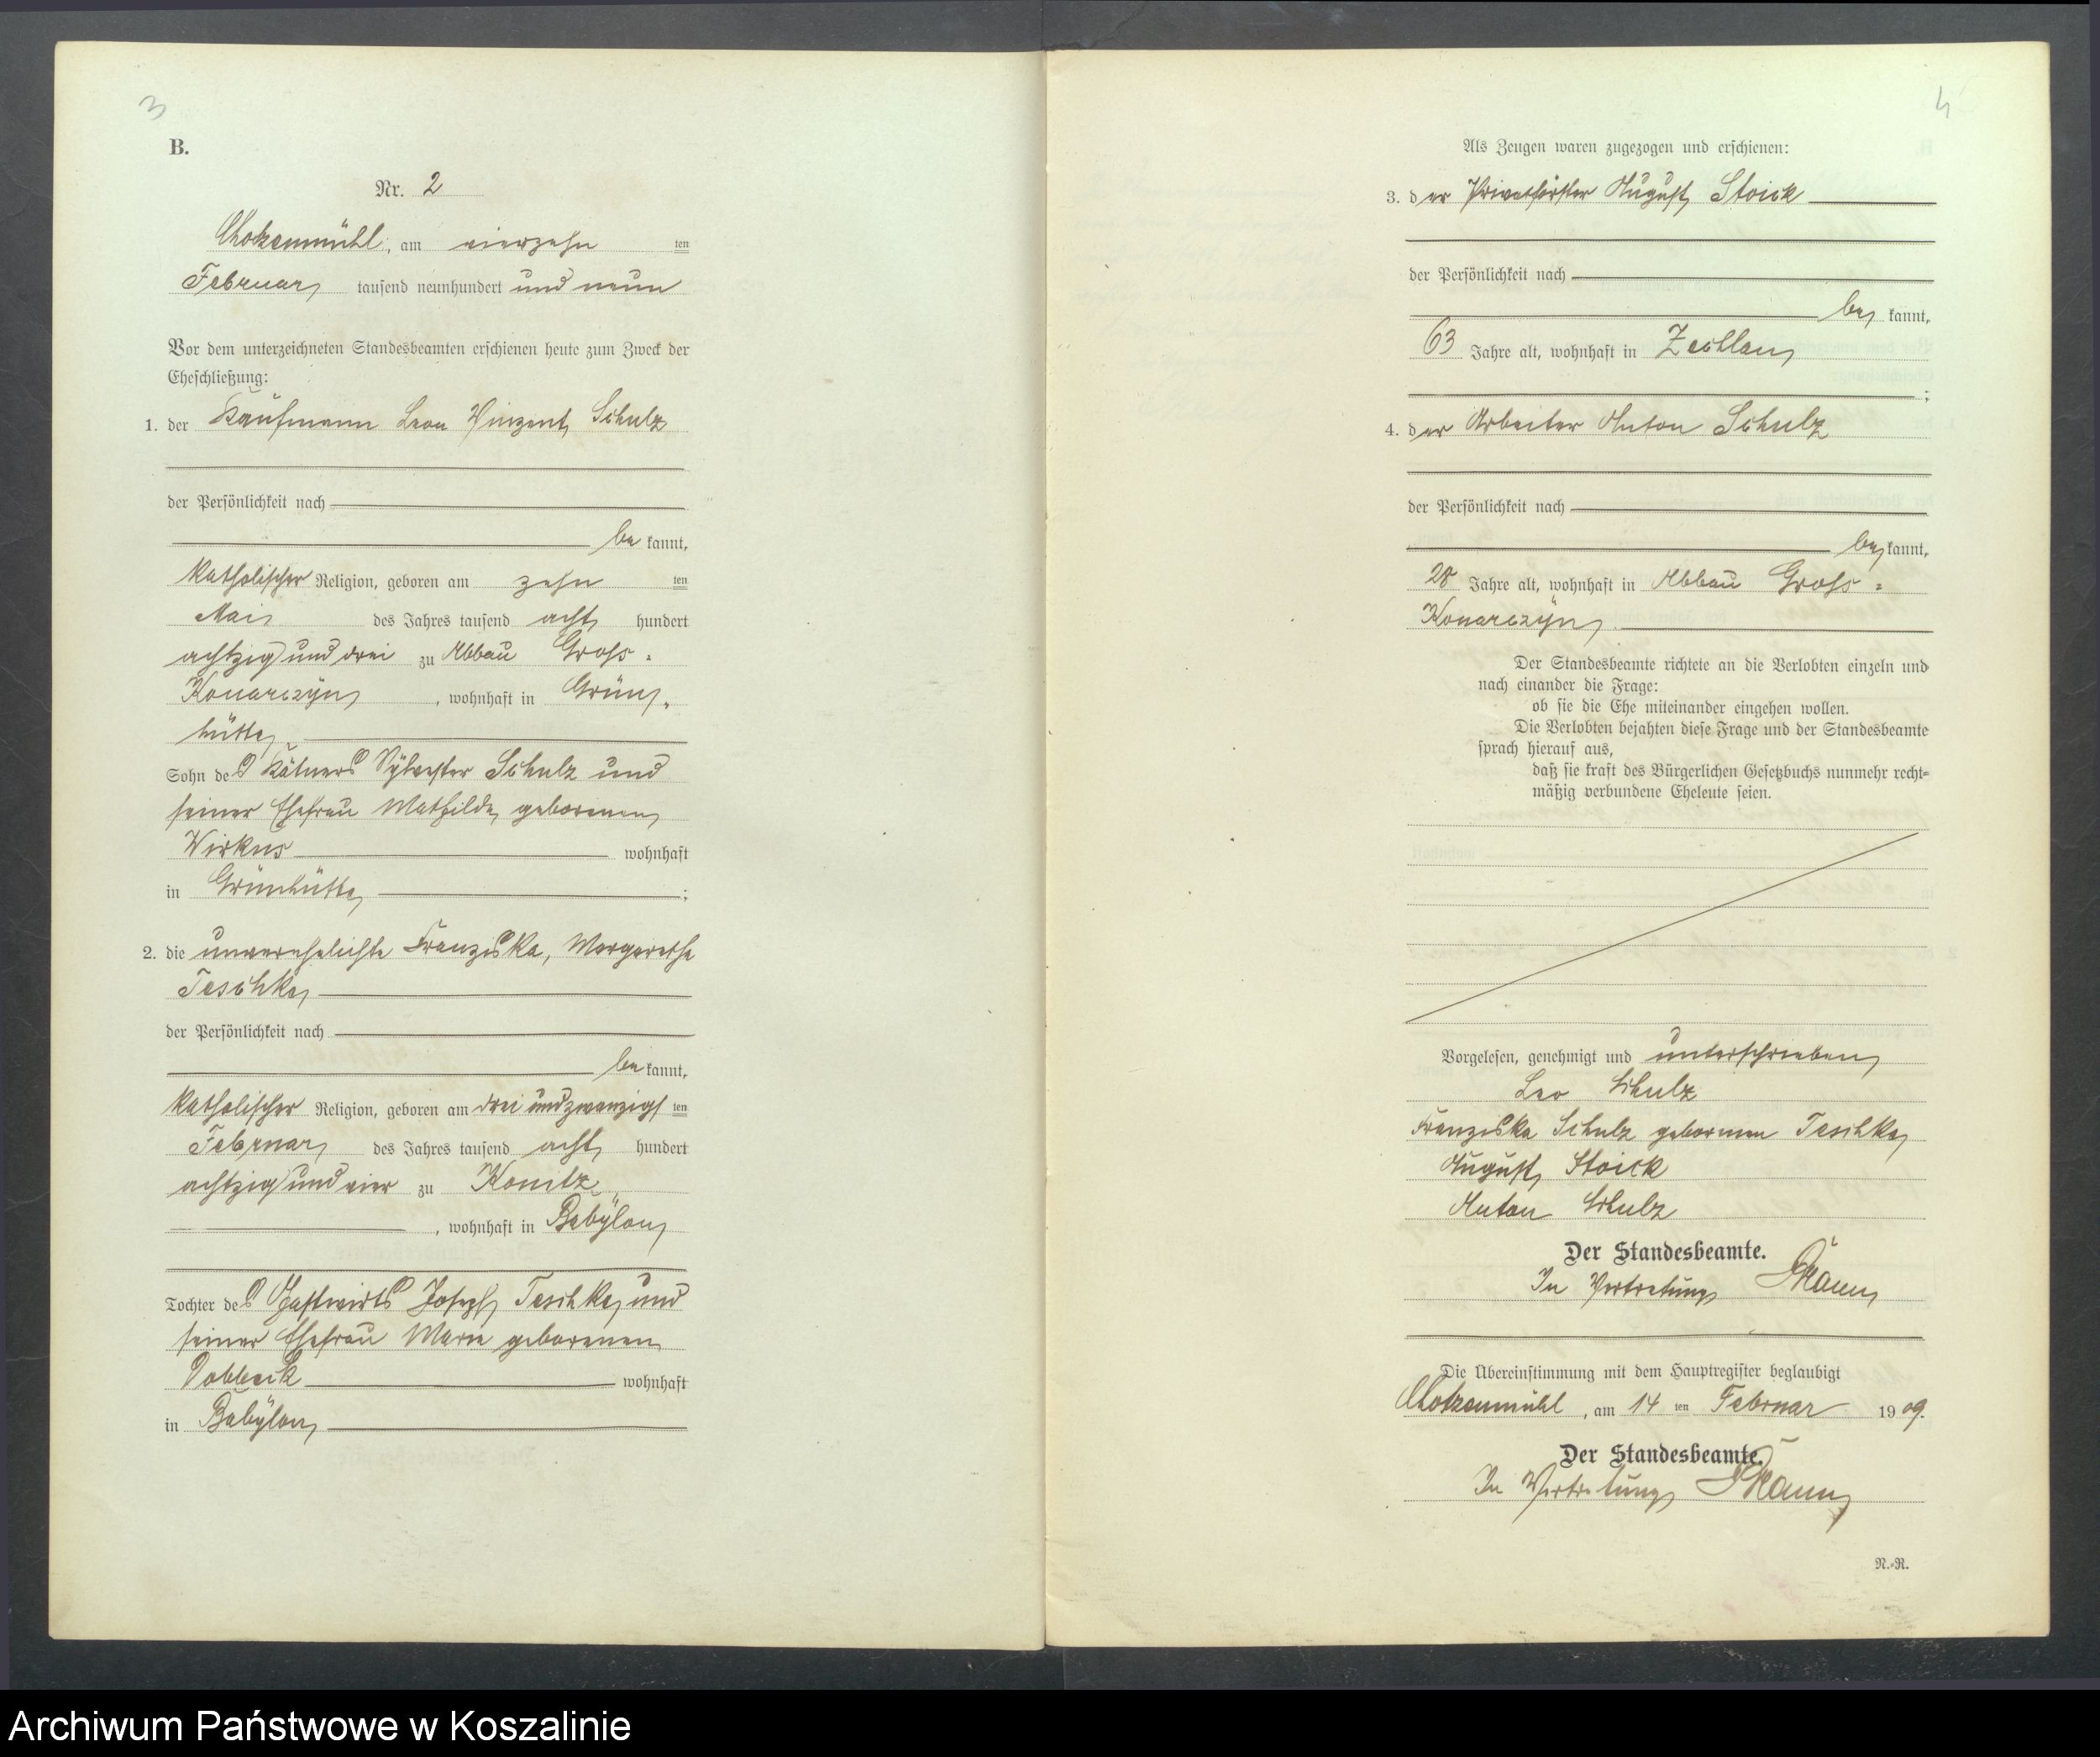 3
B.
Nr. 2
Chotzenmühl, am vierzehn ten
Februar tausend neunhundert und neun
Vor dem unterzeichneten Standesbeamten erschienen heute zum Zweck der
Eheschließung:
1. der Kaufmann Leon Vinzent Schulz
der Persönlichkeit nach
be kannt,
katholischer Religion, geboren am zehn ten
Mai des Jahres tausend acht hundert
achtzig und drei zu Abbau Gross-
Konarczyn, wohnhaft in Grün-
hütte
Sohn des Kätners Sylvester Schulz und
seiner Ehefrau Mathilde, geborenen
Wirkus wohnhaft
in Grünhütte ;
2. die unverehelichte Franziska, Margarethe
Teschke
der Persönlichkeit nach
be kannt,
katholischer Religion, geboren am drei und zwanzigs ten
Februar des Jahres tausend acht hundert
achtzig und vier zu Konitz
, wohnhaft in Babylon
Tochter des Gastwirts Joseph Teschke und
seiner Ehefrau Marie geborenen
wohnhaft
in Babylon
4
Als Zeugen waren zugezogen und erschienen:
3. der Privatförster August Stoick
der Persönlichkeit nach
be kannt,
63 Jahre alt, wohnhaft in Zechlau
;
4. der Arbeiter Anton Schulz
der Persönlichkeit nach
be kannt,
28 Jahre alt, wohnhaft in Abbau Gross-
Konarczyn
Der Standesbeamte richtete an die Verlobten einzeln und
nach einander die Frage:
ob sie die Ehe miteinander eingehen wollen.
Die Verlobten bejahten diese Frage und der Standesbeamte
sprach hierauf aus,
daß sie kraft des Bürgerlichen Gesetzbuchs nunmehr recht=
mäßig verbundene Eheleute seien.
Vorgelesen, genehmigt und unterschrieben
Leo Schulz
Franziska Schulz geborenen Teschke
August Stoick
Anton Schulz
Der Standesbeamte.
In Vertretung
Die Übereinstimmung mit dem Hauptregister beglaubigt
Chotzenmühl, am 14 ten Februar 1909.
Der Standesbeamte.
In Vertretung
N.=R.
Archiwum Państwowe w Koszalinie